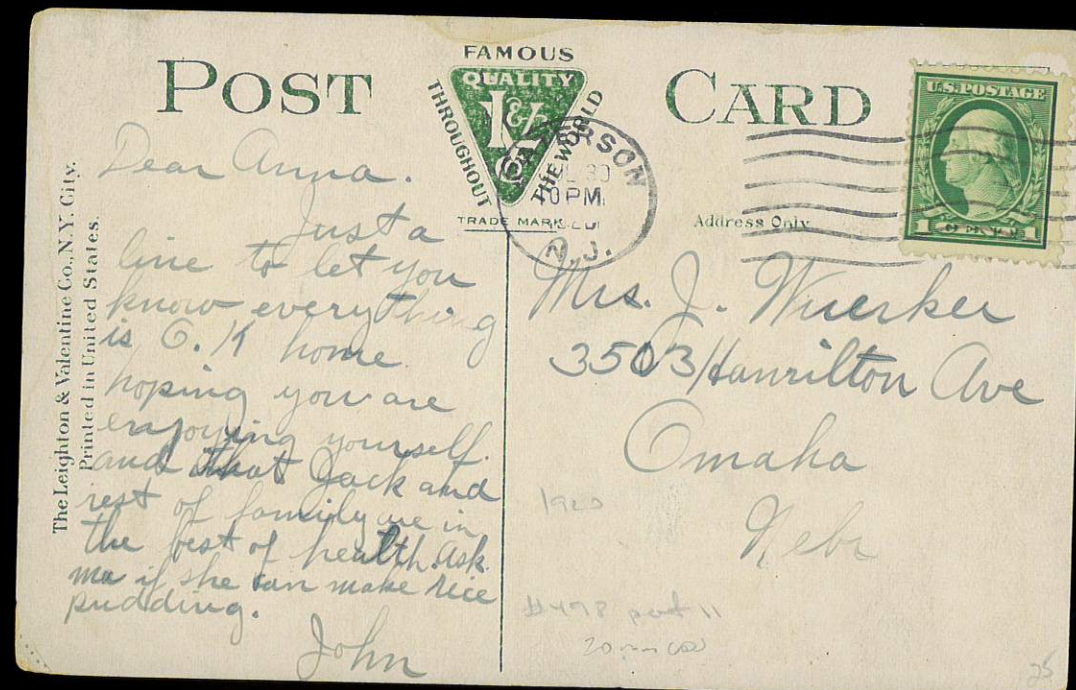 POST CARD
FAMOUS
QUALITY
THROUGHOUT
THE WORLD
TRADE MARK
PATERSON
30
10 PM
N.J.
U.S. POSTAGE
1 CENT 1
Address Only
The Leighton & Valentine Co., N.Y. City.
Printed in United States.
Dear Anna.
Just a
line to let you
know everything
is O.K home
hoping you are
enjoying yourself.
and that Jack and
rest of family are in
the best of health. Ask
ma if she can make rice
pudding.
John
Mrs. J. Wuerker
3503 Hamilton Ave
Omaha
Nebr
1920
#498
25